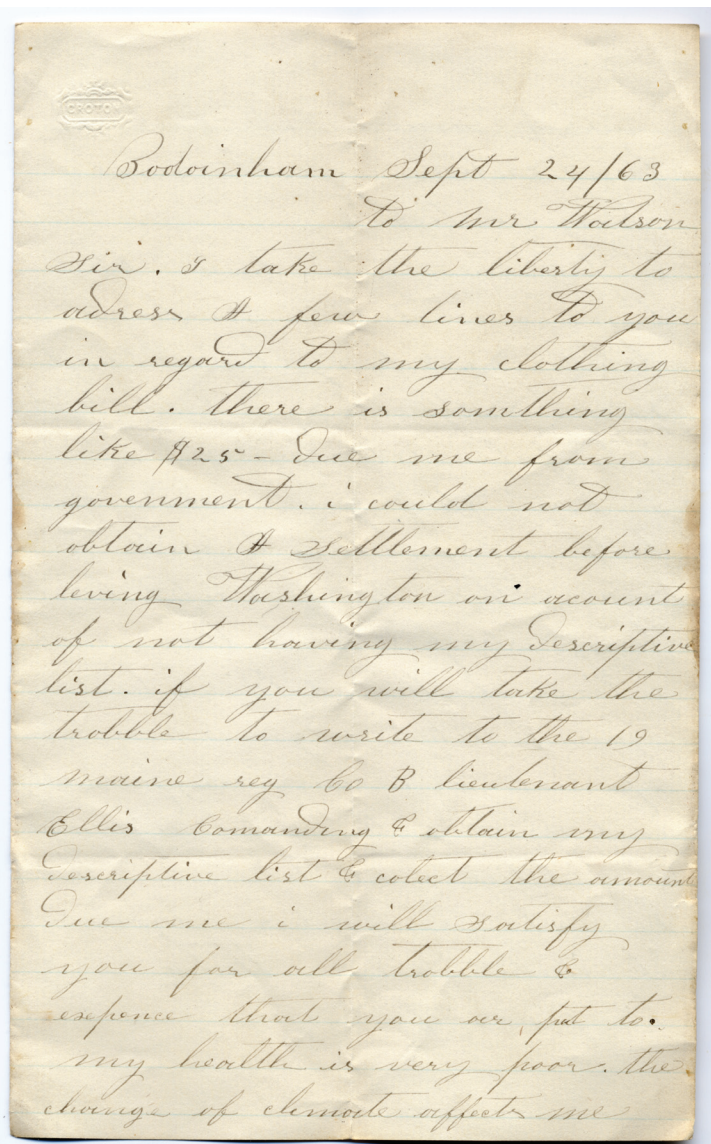 CROTON
Bodoinham Sept 24/63
to Mr Watson
Sir. I take the liberty to
adress A few lines to you
in regard to my clothing
bill. there is somthing
like $25 - due me from
govenment. i could not
obtain A settlement before
leving Washington on acount
of not having my descriptive
list. if you will take the
trobble to write to the 19
maine reg Co B lieutenant
Ellis Comanding & obtain my
descriptive list & colect the amount
due me i will satisfy
you for all trobble &
expence that you ar put to.
my health is very poor. the
change of climate affects me